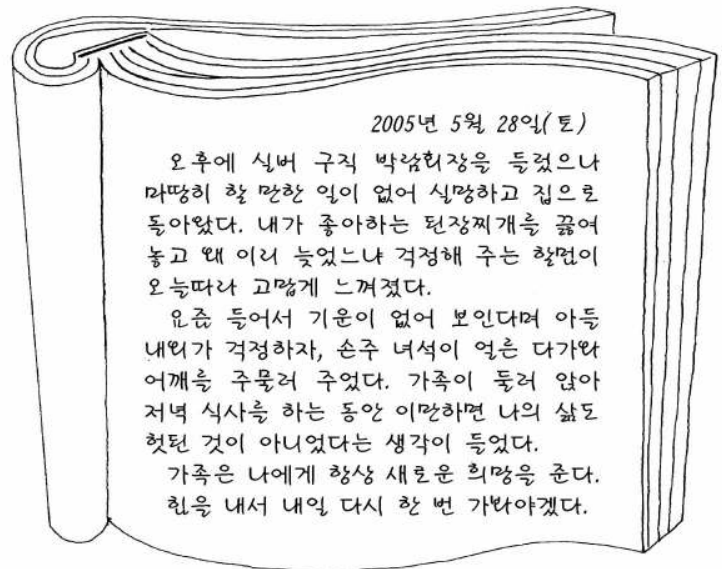 2005년 5월 28일(토)
오후에 실버 구직 박람회장을 들렀으나
마땅히 할 만한 일이 없어 실망하고 집으로
돌아왔다. 내가 좋아하는 된장찌개를 끓여
놓고 왜 이리 늦었느냐 걱정해 주는 할멈이
오늘따라 고맙게 느껴졌다.
요즘 들어서 기운이 없어 보인다며 아들
내외가 걱정하자, 손주 녀석이 얼른 다가와
어깨를 주물러 주었다. 가족이 둘러 앉아
저녁 식사를 하는 동안 이만하면 나의 삶도
헛된 것이 아니었다는 생각이 들었다.
가족은 나에게 항상 새로운 희망을 준다.
힘을 내서 내일 다시 한 번 가봐야겠다.